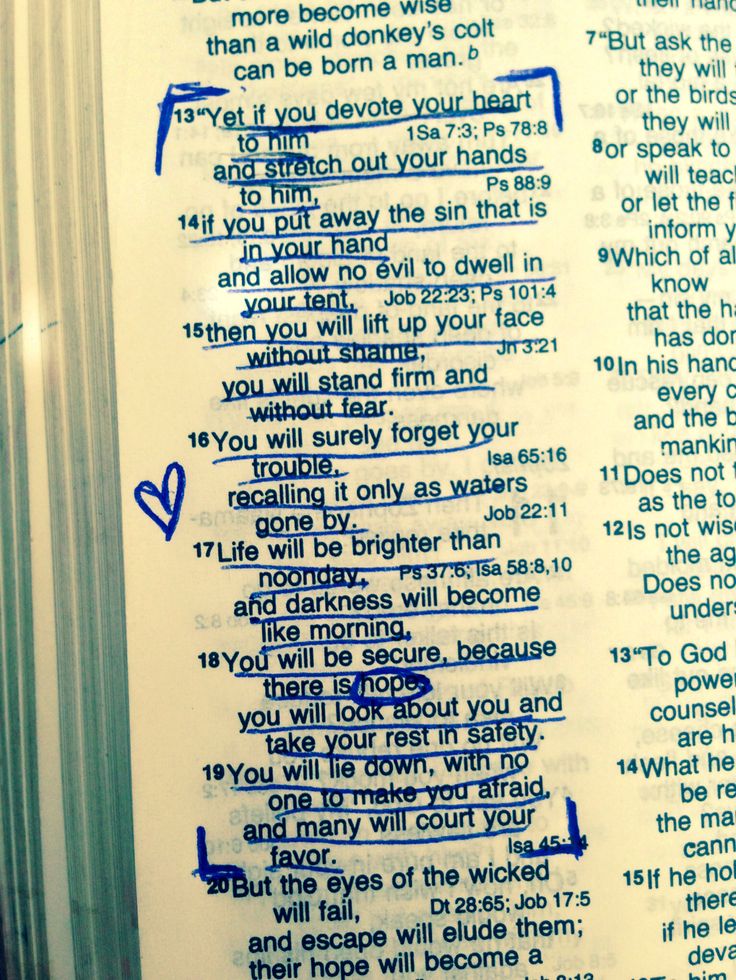 more become wise
than a wild donkey's colt
can be born a man. b
13"Yet if you devote your heart
to him 1Sa 7:3; Ps 78:8
and stretch out your hands
to him, Ps 88:9
14if you put away the sin that is
in your hand
and allow no evil to dwell in
your tent, Job 22:23; Ps 101:4
15then you will lift up your face
without shame, Jn 3:21
you will stand firm and
without fear.
16You will surely forget your
trouble, Isa 65:16
recalling it only as waters
gone by. Job 22:11
17Life will be brighter than
noonday, Ps 37:6; Isa 58:8,10
and darkness will become
like morning,
18You will be secure, because
there is hope;
you will look about you and
take your rest in safety.
19You will lie down, with no
one to make you afraid,
and many will court your
favor. Isa 45:14
20But the eyes of the wicked
will fail, Dt 28:65; Job 17:5
and escape will elude them;
their hope will become a
7"But ask the
they will
or the birds
they will
8or speak to
will
or let the
inform
9Which of
know
that the
has
10In his
every
and the
11Does not
as the
12Is not
the
Does
13"To God
are
14What he
be
the
15If he
there
if he
him